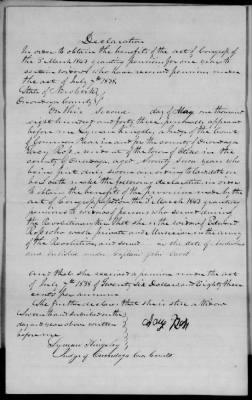 Declaration
In order to obtain the benefits of the act of Congress of
the 3d March 1843 granting pensions for one year to
widows who have received pensions under
the act of July 7th 1838.
State of New York
Onondaga County
On this Second day of May one thousand
eight hundred and forty three, personally appeared
before me Lyman Kingsley, a Judge of the Court
of Common Pleas in and for the county of Onondaga
Lucy Ross, a resident of the town of in the
county of Onondaga, aged Seventy Seven years who
being first duly sworn according to law doth on
her oath make the following declaration in order
to obtain the benefits of the provision made by the
act of Congress passed on the 3d March 1843 granting
pensions to widows of persons who served during
the Revolutionary that she is the widow of
Ross who was a private and in the army
of the Revolution and served in the state of
and enlisted under Captain John
And that she received a pension under the act
of July 7th 1838 of Twenty Six Dollars and Eighty three
cents per annum
She further declares that she is still a widow
Sworn to and subscribed on the
day and year above written
before me
Lucy Ross
Lyman Kingsley
Judge of Onondaga County Courts